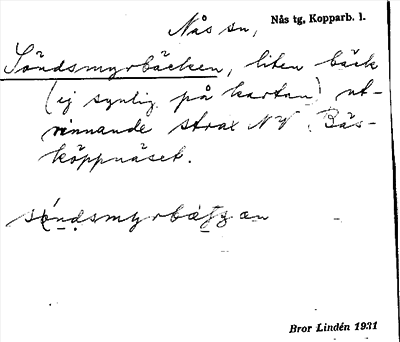 Nås sn, Nås tg, Kopparb. l.
Söndsmyrbäcken, liten bäck
(ej synlig på kartan) ut-
rinnande strax NV. Bäs-
köppnäset.
Bror Lindén 1931